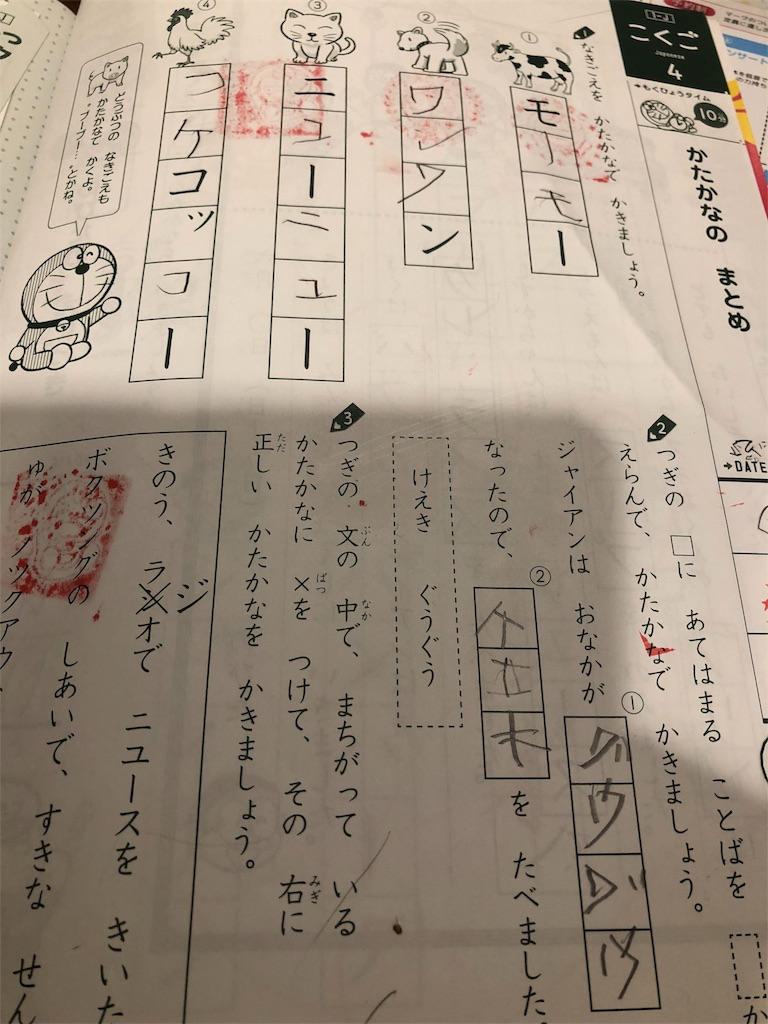 こくご
Japanese
4
→もくひょうタイム
10分
かたかなの まとめ
→DATE
1 なきごえを かたかなで かきましょう。
①
モーモー
②
ワンワン
③
ニューニュー
④
コケコッコー
どうぶつの なきごえも
かたかなで かくよ。
“ブーブー…”とかね。
2 つぎの □に あてはまる ことばを
えらんで、かたかなで かきましょう。
ジャイアンは おなかが ①グウグウ
なったので、②ケエキを たべました。
けえき ぐうぐう
3 つぎの 文の 中で、まちがって いる
ぶん なか
かたかなに ×を つけて、その 右に
ばつ みぎ
正しい かたかなを かきましょう。
ただ
きのう、ラシオで ニュースを きいた
ジ
ボクツングの しあいで、すきな せん
ゅが ノックアウ